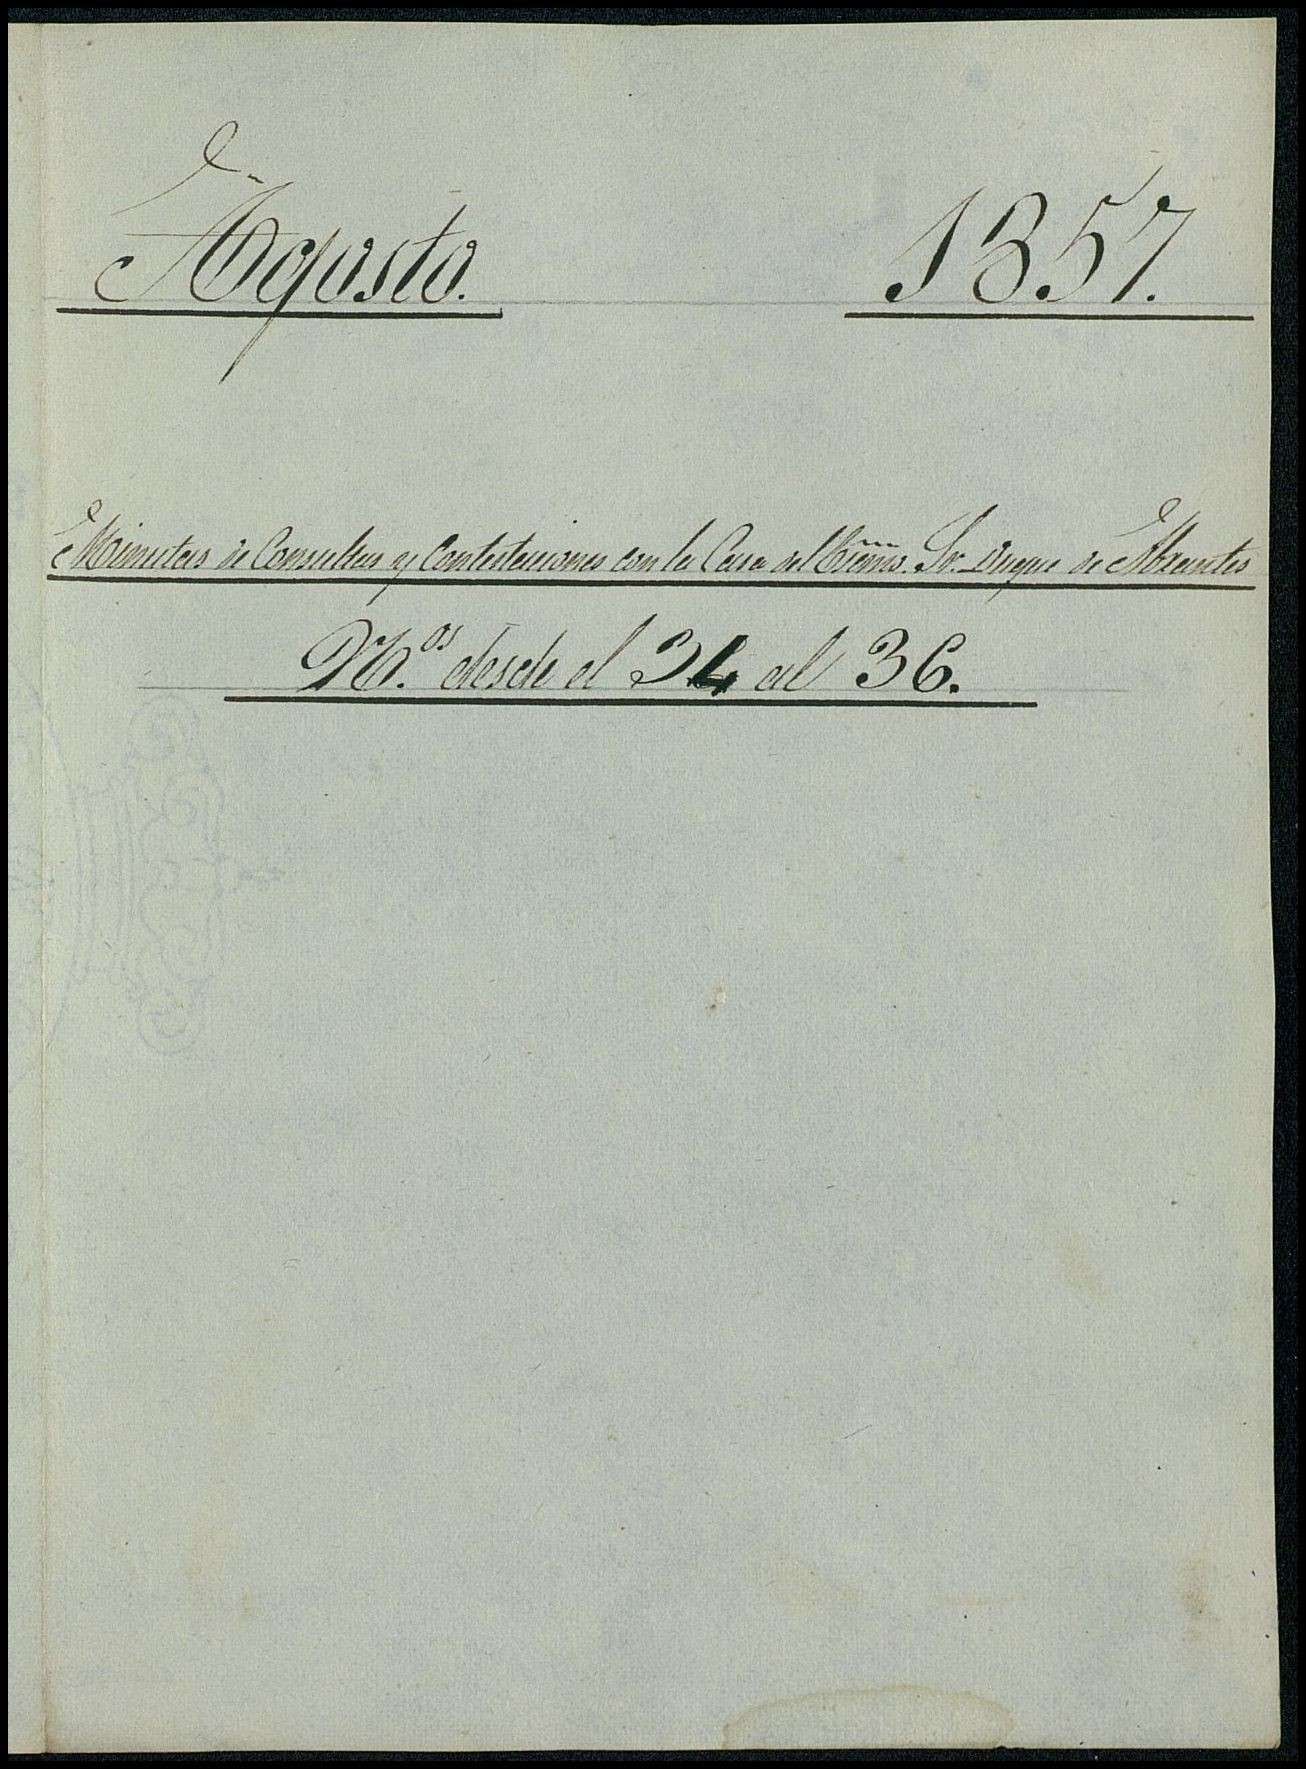 Agosto. 1857.
Minutas de Consultas y Contestaciones con la Casa del Excmo. Sr. Duque de Abrantes
N.os desde el 34 al 36.